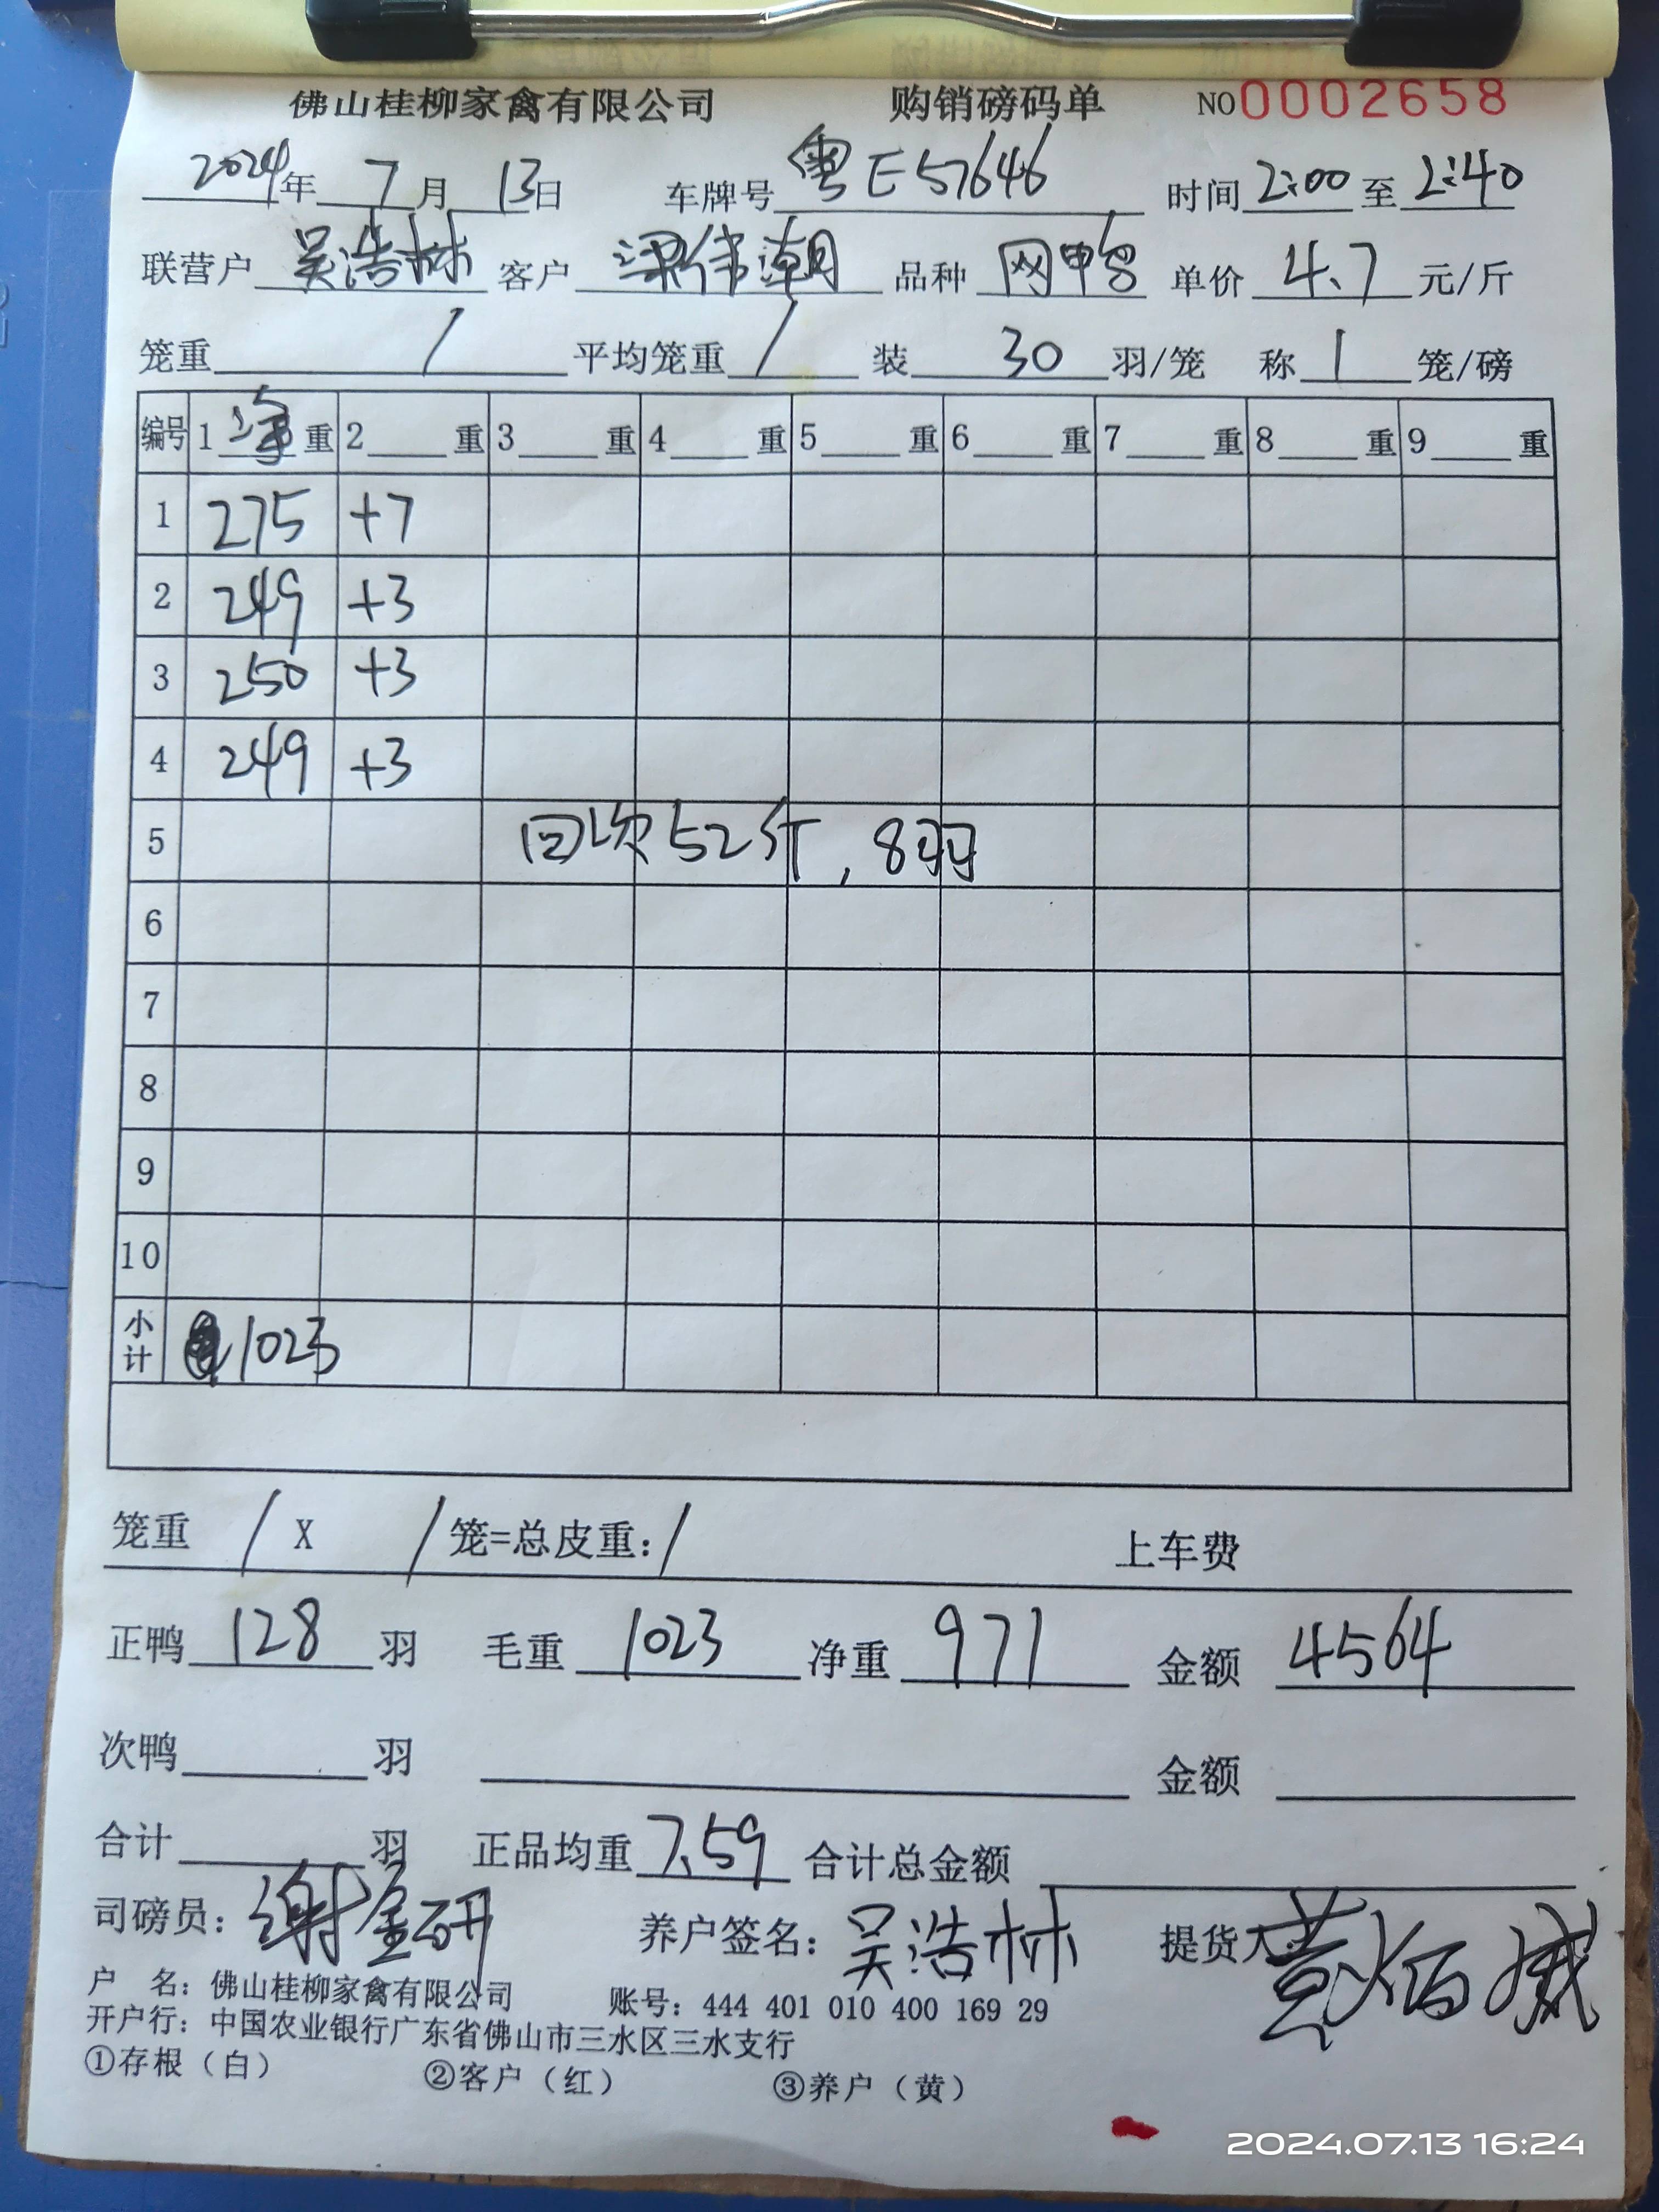 佛山桂柳家禽有限公司 购销磅码单 NO0002658
2024年 7月 13日 车牌号 粤E57646 时间 2:00 至 2:40
联营户 吴浩林 客户 梁伟潮 品种 网鸭 单价 4.7 元/斤
笼重 / 平均笼重 / 装 30 羽/笼 称 1 笼/磅
编号 1 净 重 2 重 3 重 4 重 5 重 6 重 7 重 8 重 9 重
1 275 +7
2 249 +3
3 250 +3
4 249 +3
5 回次52斤,8羽
6
7
8
9
10
小计 1023
笼重 / X / 笼=总皮重: / 上车费
正鸭 128 羽 毛重 1023 净重 971 金额 4564
次鸭 羽 金额
合计 羽 正品均重 7.59 合计总金额
司磅员: 谢金研 养户签名: 吴浩林 提货人 黄炳威
户 名: 佛山桂柳家禽有限公司 账号: 444 401 010 400 169 29
开户行: 中国农业银行广东省佛山市三水区三水支行
①存根(白) ②客户(红) ③养户(黄)
2024.07.13 16:24